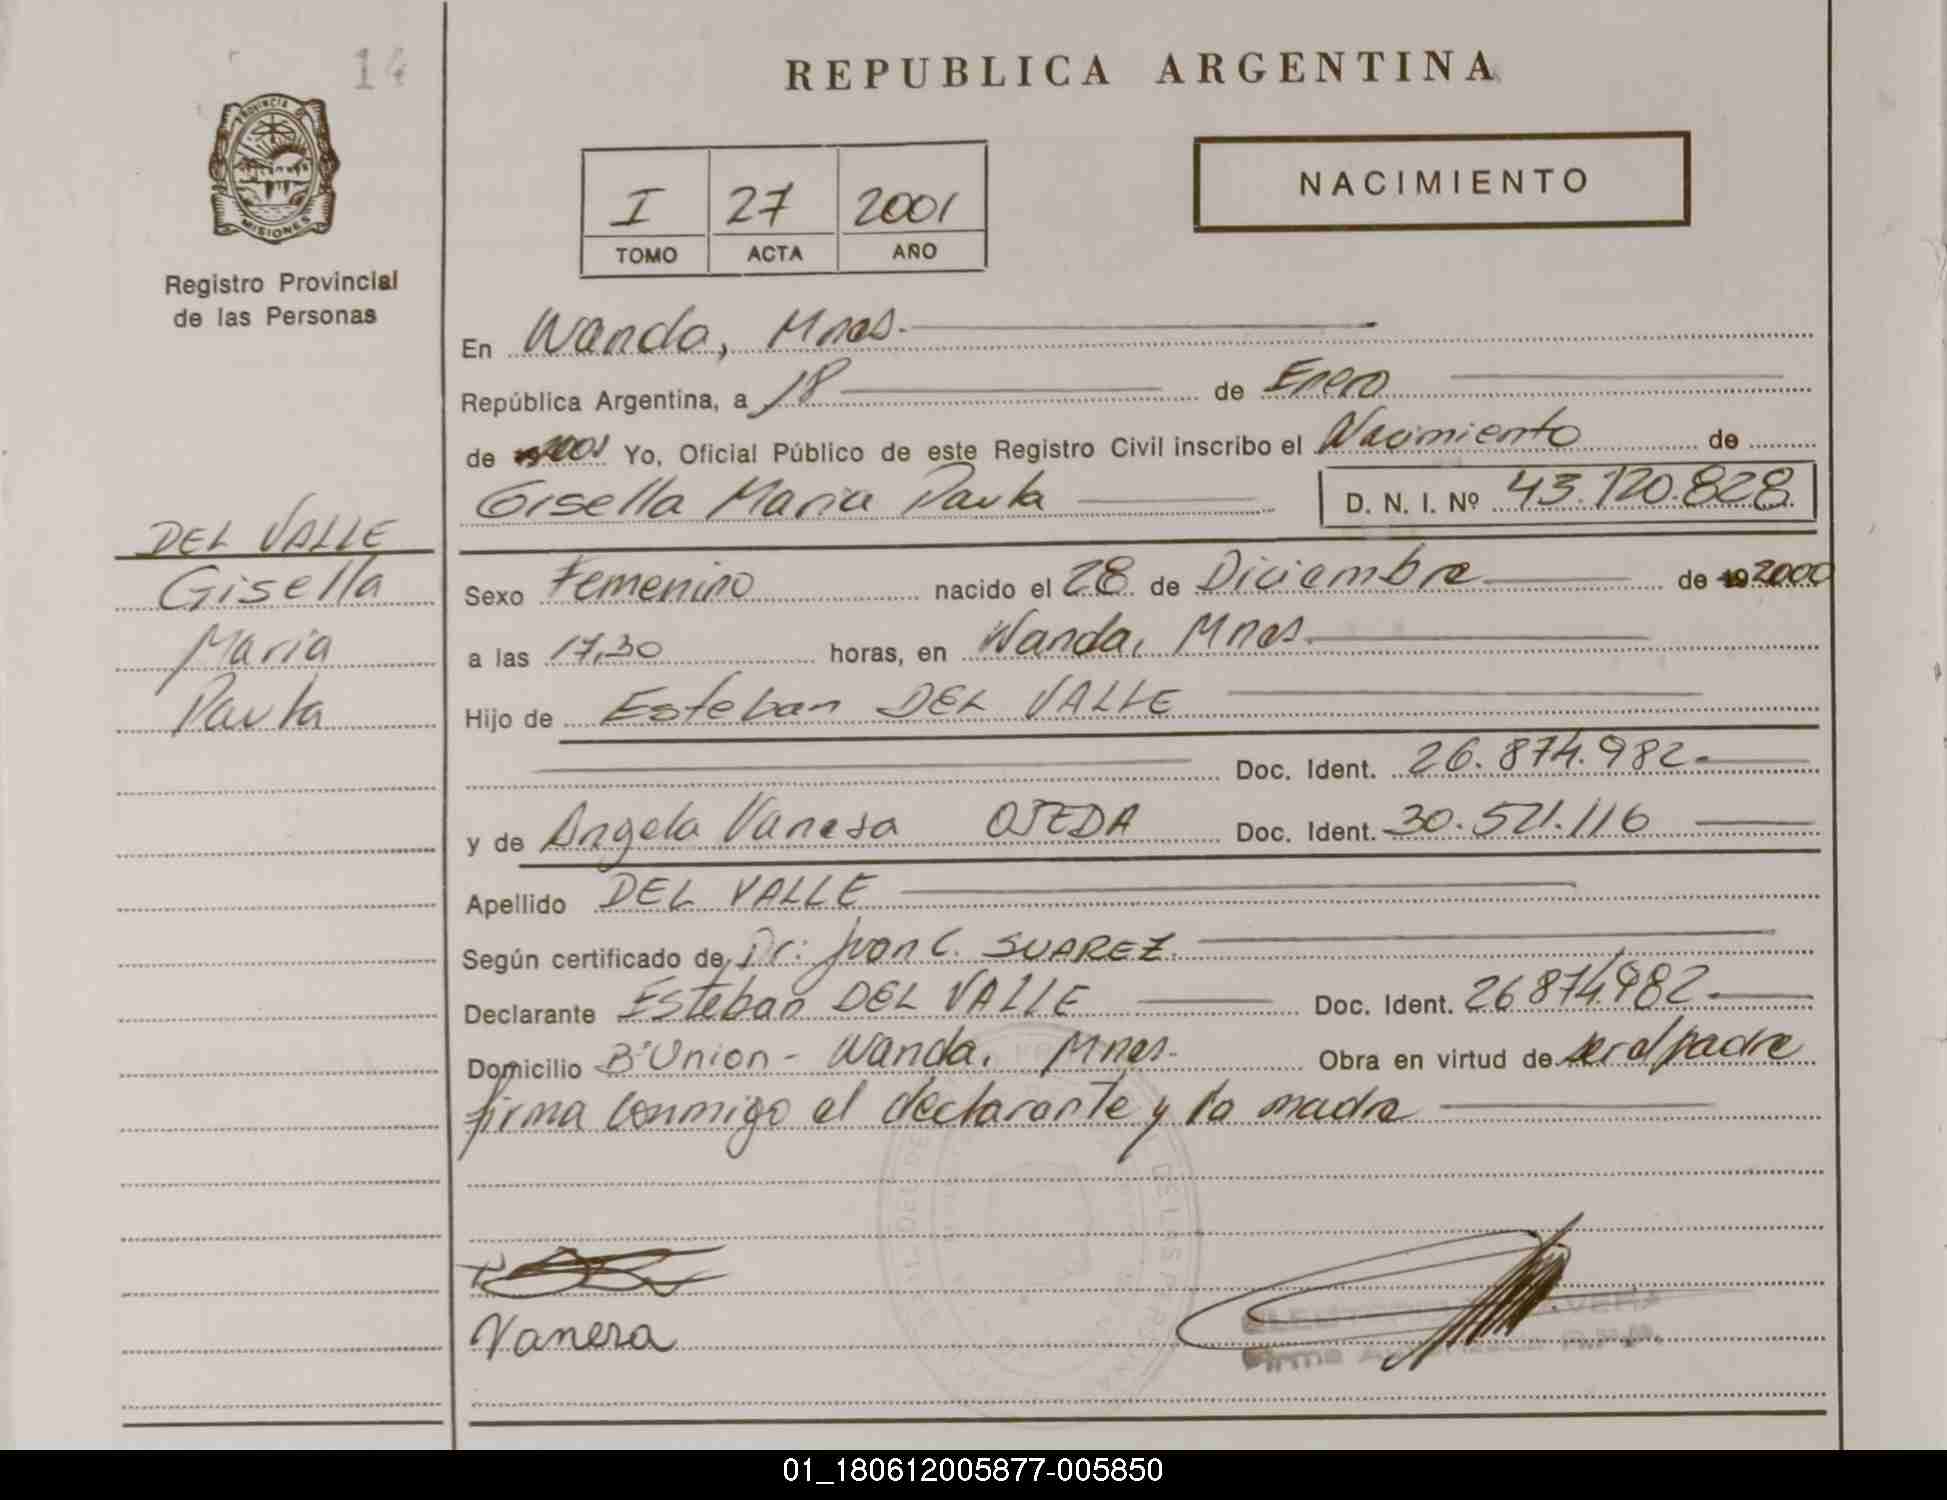 14
PROVINCIA D
MISIONES
Registro Provincial
de las Personas
DEL VALLE
Gisella
Maria
Paula
REPUBLICA ARGENTINA
I 27 2001
TOMO ACTA AÑO
NACIMIENTO
En Wanda, Mnes.
República Argentina, a 18 de Enero
de 2001 Yo, Oficial Público de este Registro Civil inscribo el Nacimiento de
Gisella Maria Paula D. N. I. Nº 43.120.828.
Sexo Femenino nacido el 28 de Diciembre de 19 2000
a las 17,30 horas, en Wanda, Mnes.
Hijo de Esteban DEL VALLE
Doc. Ident. 26.874.982
y de Angela Vanesa OJEDA Doc. Ident. 30.521.116
Apellido DEL VALLE
Según certificado de Dr: Juan C. SUAREZ.
Declarante Esteban DEL VALLE Doc. Ident. 26.874.982
Domicilio Bº Union - Wanda, Mnes. Obra en virtud de ser el padre
firma conmigo el declarante y la madre
Vanesa
Firma
01_180612005877-005850